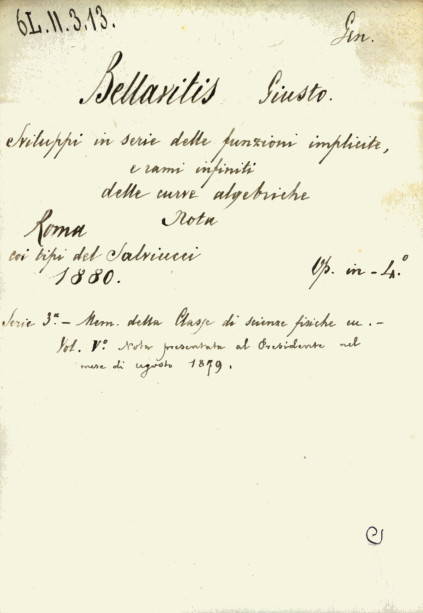 6L.11.3.13.
Gen.
Bellavitis Giusto.
Sviluppi in serie delle funzioni implicite,
e rami infiniti
delle curve algebriche
Nota
Roma
coi tipi del Salviucci
1880.
Op. in-4.°
Serie 3.ª - Mem. della Classe di scienze fisiche ec. -
Vol. V° Nota presentata al Presidente nel
mese di agosto 1879.